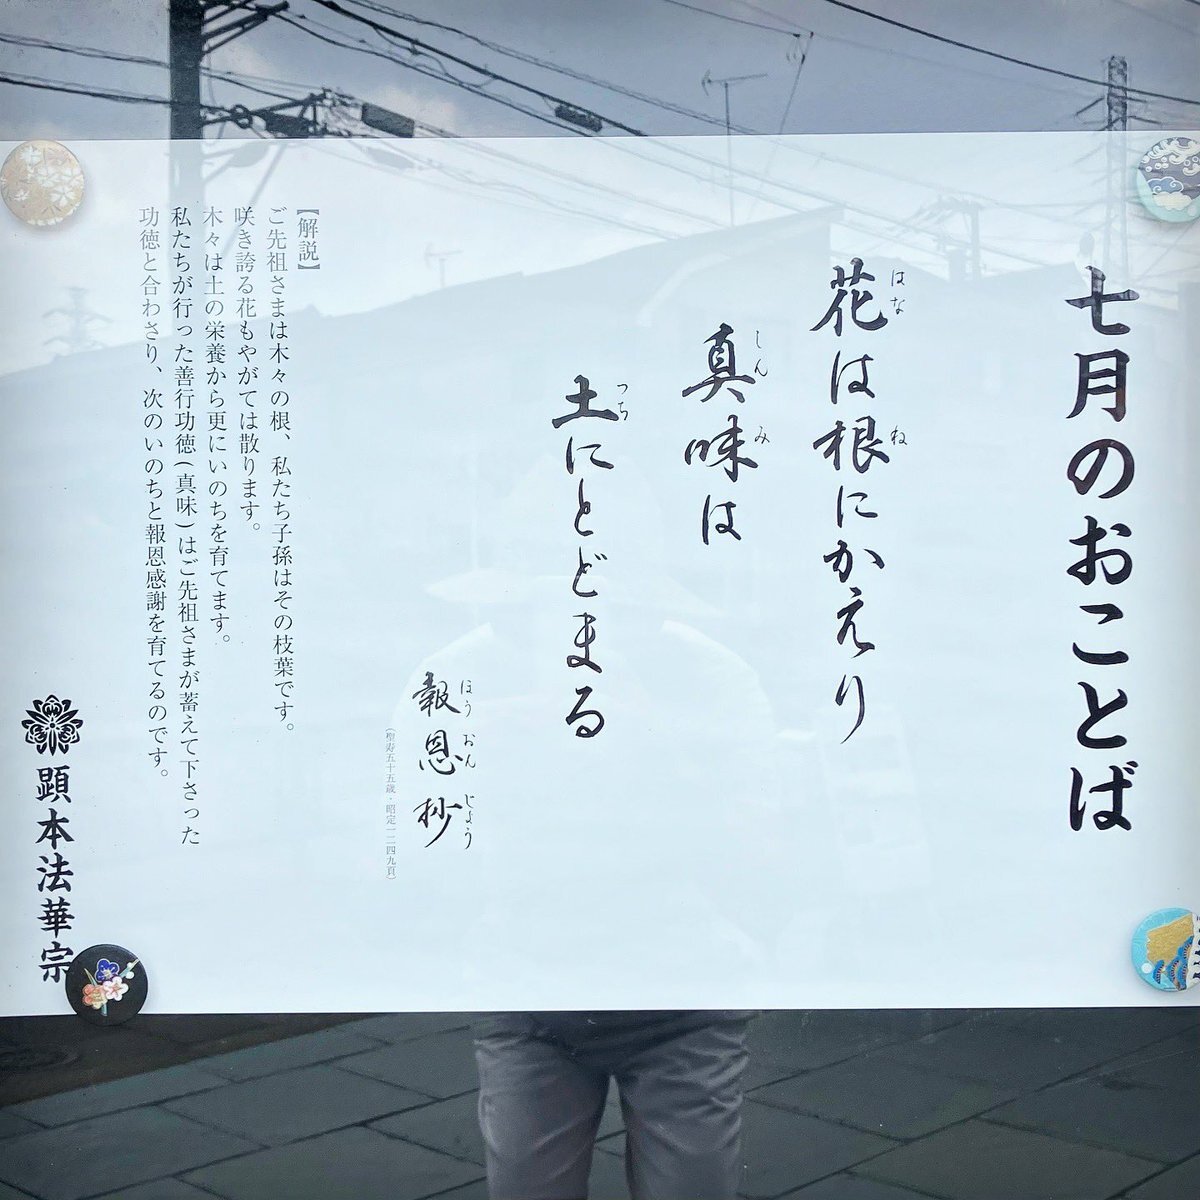 七月のおことば
花は根にかえり
はな
ね
真味は
しんみ
土にとどまる
つち
報恩抄
ほうおんじょう
(聖寿五十五歳・昭定一二四九頁)
【解説】
ご先祖さまは木々の根、私たち子孫はその枝葉です。
咲き誇る花もやがては散ります。
木々は土の栄養から更にいのちを育てます。
私たちが行った善行功徳(真味)はご先祖さまが蓄えて下さった
功徳と合わさり、次のいのちと報恩感謝を育てるのです。
顕本法華宗